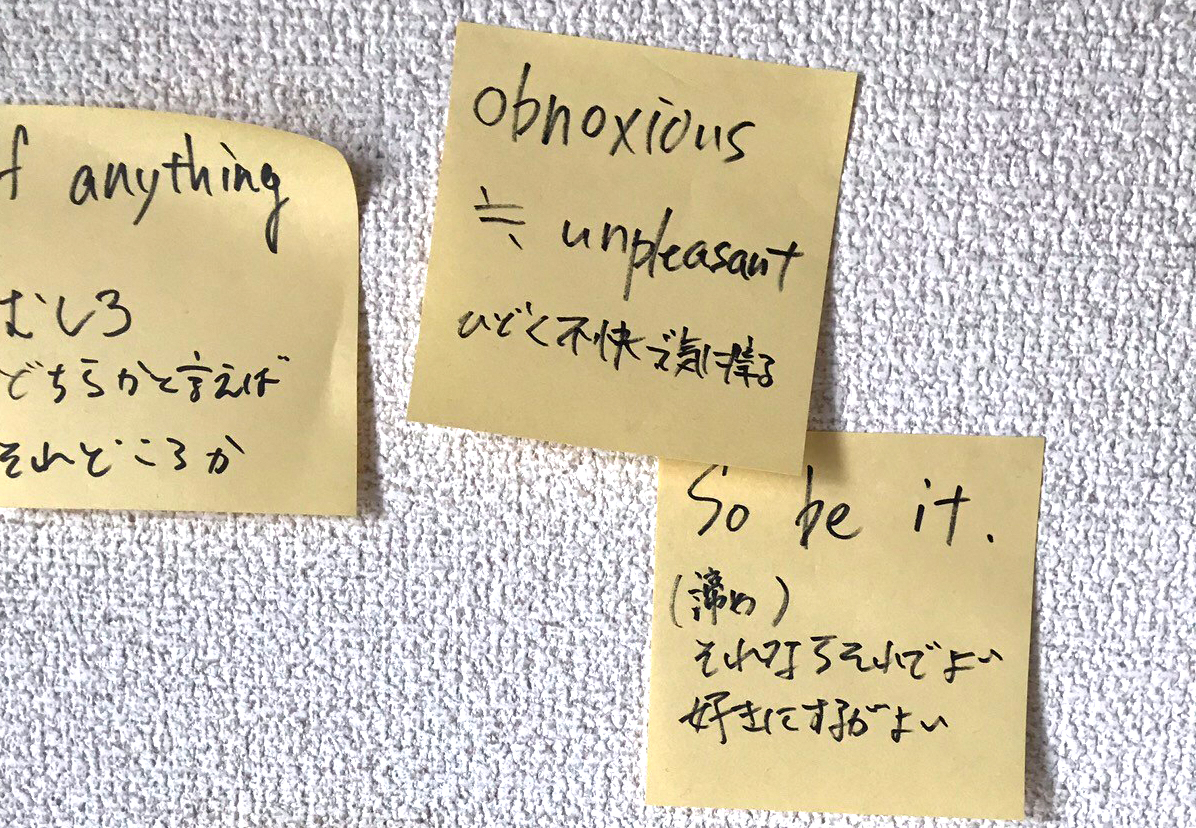 f anything
むしろ
どちらかと言えば
それどころか
obnoxious
≒ unpleasant
ひどく不快で気に障る
So be it.
(諦め)
それならそれでよい
好きにするがよい